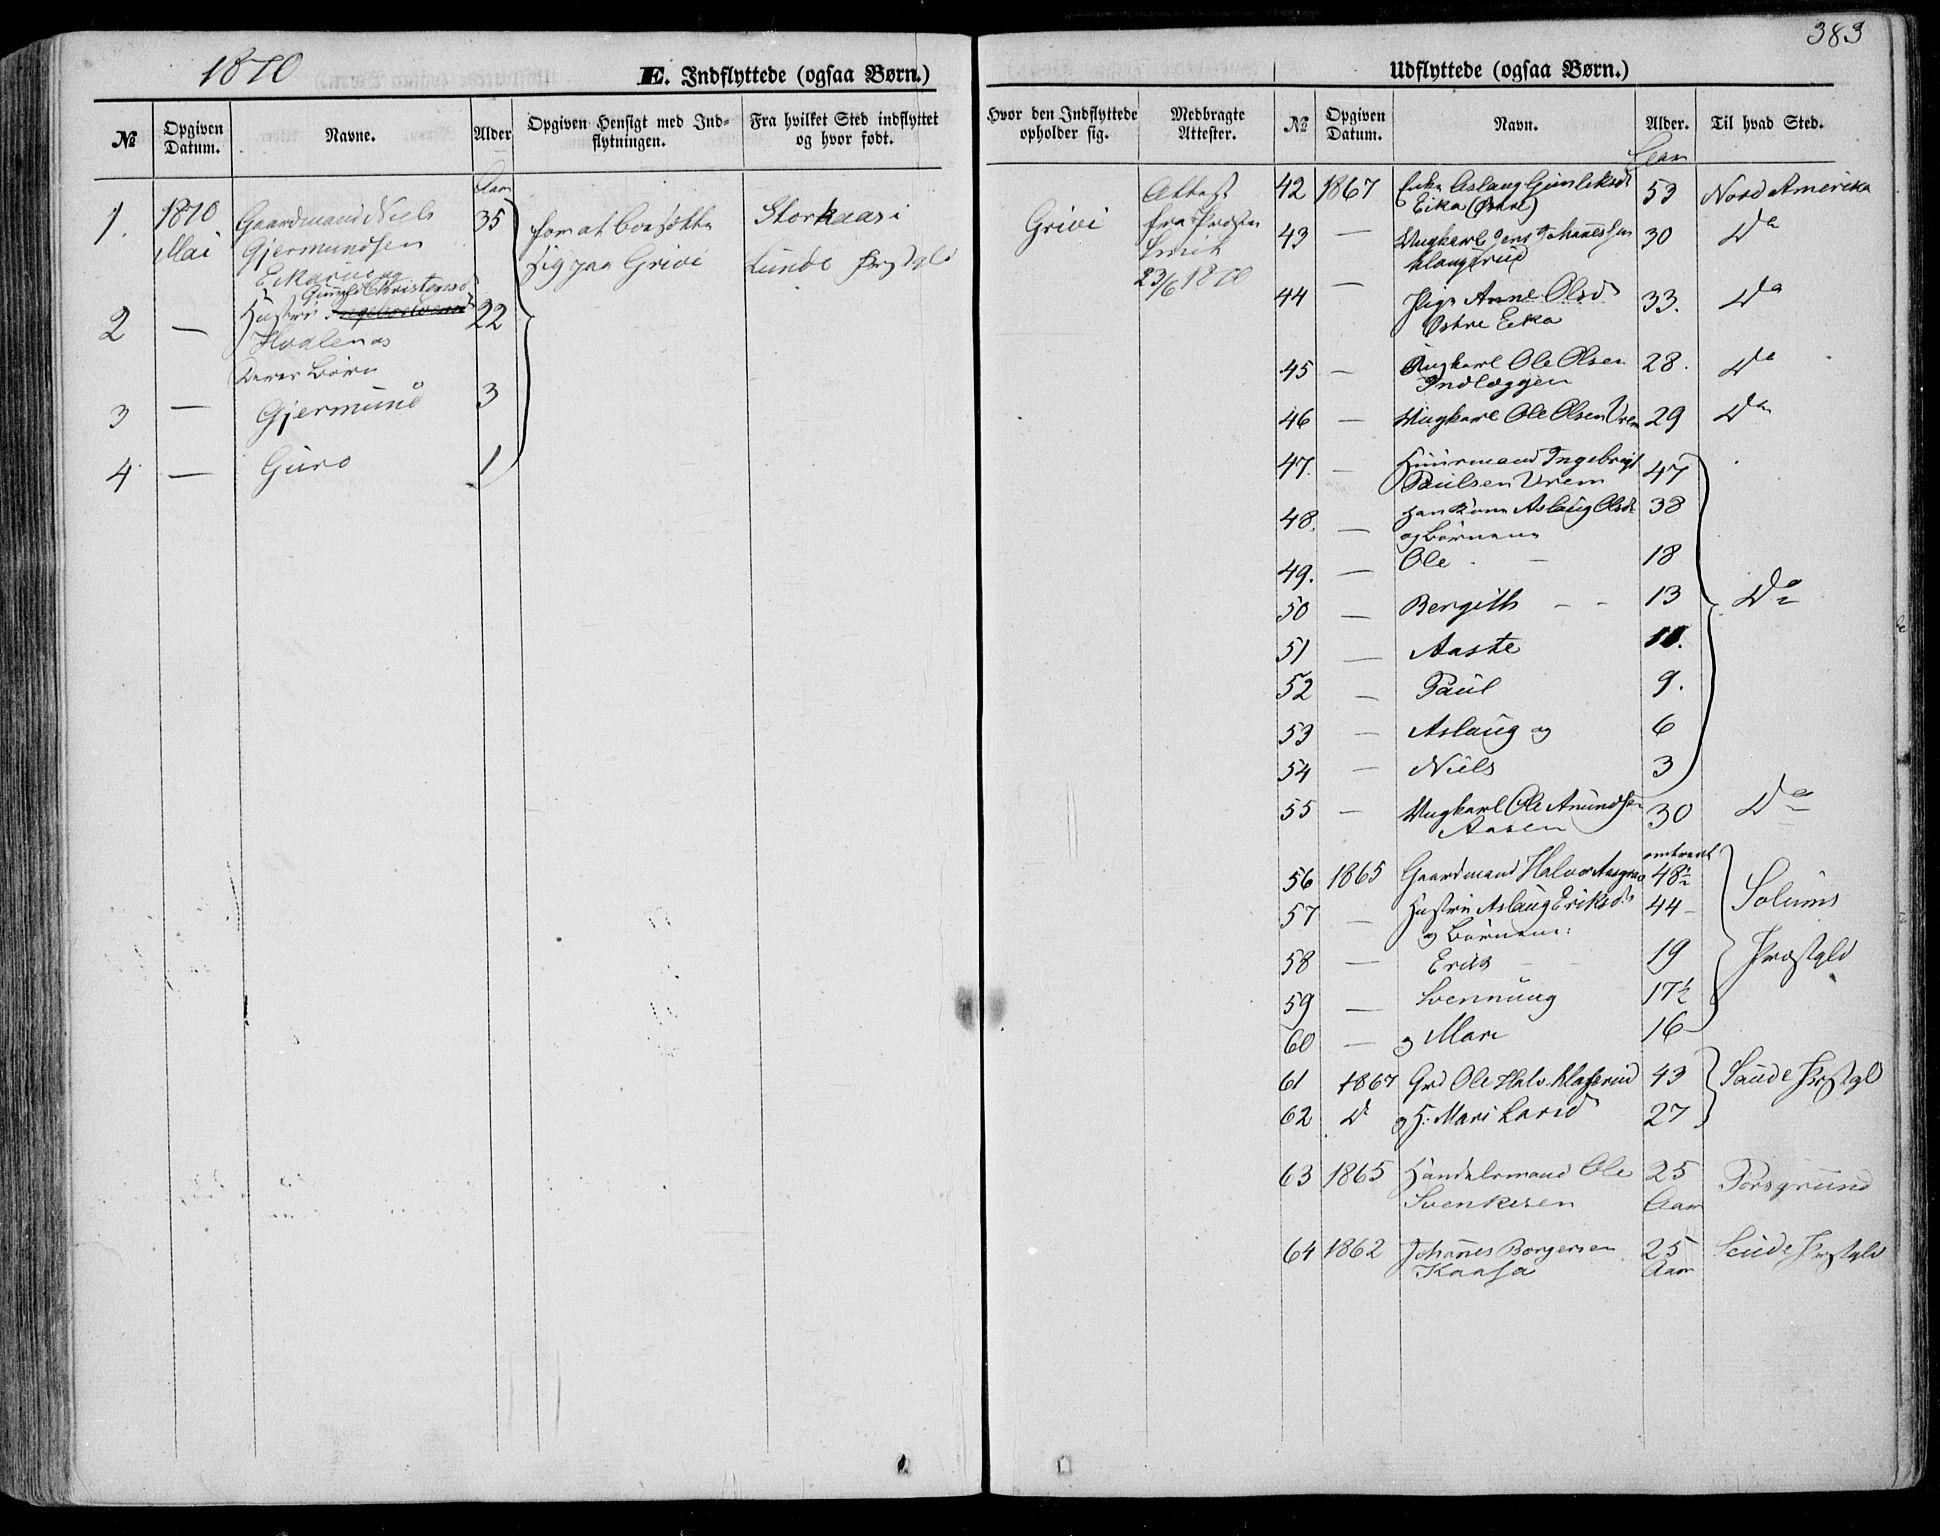 383
1870
E. Indflyttede (ogsaa Børn.)
Udflyttede (ogsaa Børn.)
№ Opgiven Datum. Navne. Alder Opgiven Hensigt med Indflytningen. Fra hvilket Sted indflyttet og hvor født.
Hvor den Indflyttede opholder sig. Medbragte Attester. № Opgiven Datum. Navn. Alder. Til hvad Sted.
Aar
1. 1870 Gaardmand Niels 35 for at bosætte Storkaas i Grivi Attest
Mai Gjermundsen sig paa Grivi Lunde Prstgld fra Præsten
og
Gunhild Christensd 23/6 1870
2 — Hustru 22
Hvalenas
Deres Børn
3 — Gjermund 3
4 — Guro 1
Aar
42 1867 Enke Aslaug Gunleiksd 53 Nord Amerika
Eika (Østre)
43 — Ungkarl Jens Johannessen 30 Do
44 — Pige Anne Olsd 33. Do
Østre Eika
45 — Ungkarl Ole Olsen 28. Do
Indlæggen
46 — Ungkarl Ole Olsen Vrem 29 Do
47. — Huusmand Ingebrigt 47
Paulsen Vrem
48. — Hans Kone Aslaug Olsd 38
og Børnene
49. — Ole - — 18
50 — Bergith - - 13 Do
51 — Aaste 11.
52 — Paul 9.
53 — Aslaug og 6
54 — Niels 3
55 — Ungkarl Ole Amundsen 30 Do
Aasen
omtrent
56 1865 Gaardmand Halvor 48½ Solums
57 — Hustru Aslaug Eriksd 44 -
og Børnene:
58 — Erik - - 19 Præstgld
59 — Svennung 17½
60 — og Mari 16
61 1867 Grd Ole Halv. Klaserud 43 Saude Prstgld
62 Do og H: Mari Larsd 27
63 1865 Handelsmand Ole 25 Porsgrund
Svenkesen Aar
64 1862 Johannes Borgersen 25 Saude Prstgld
Kaasa Aar